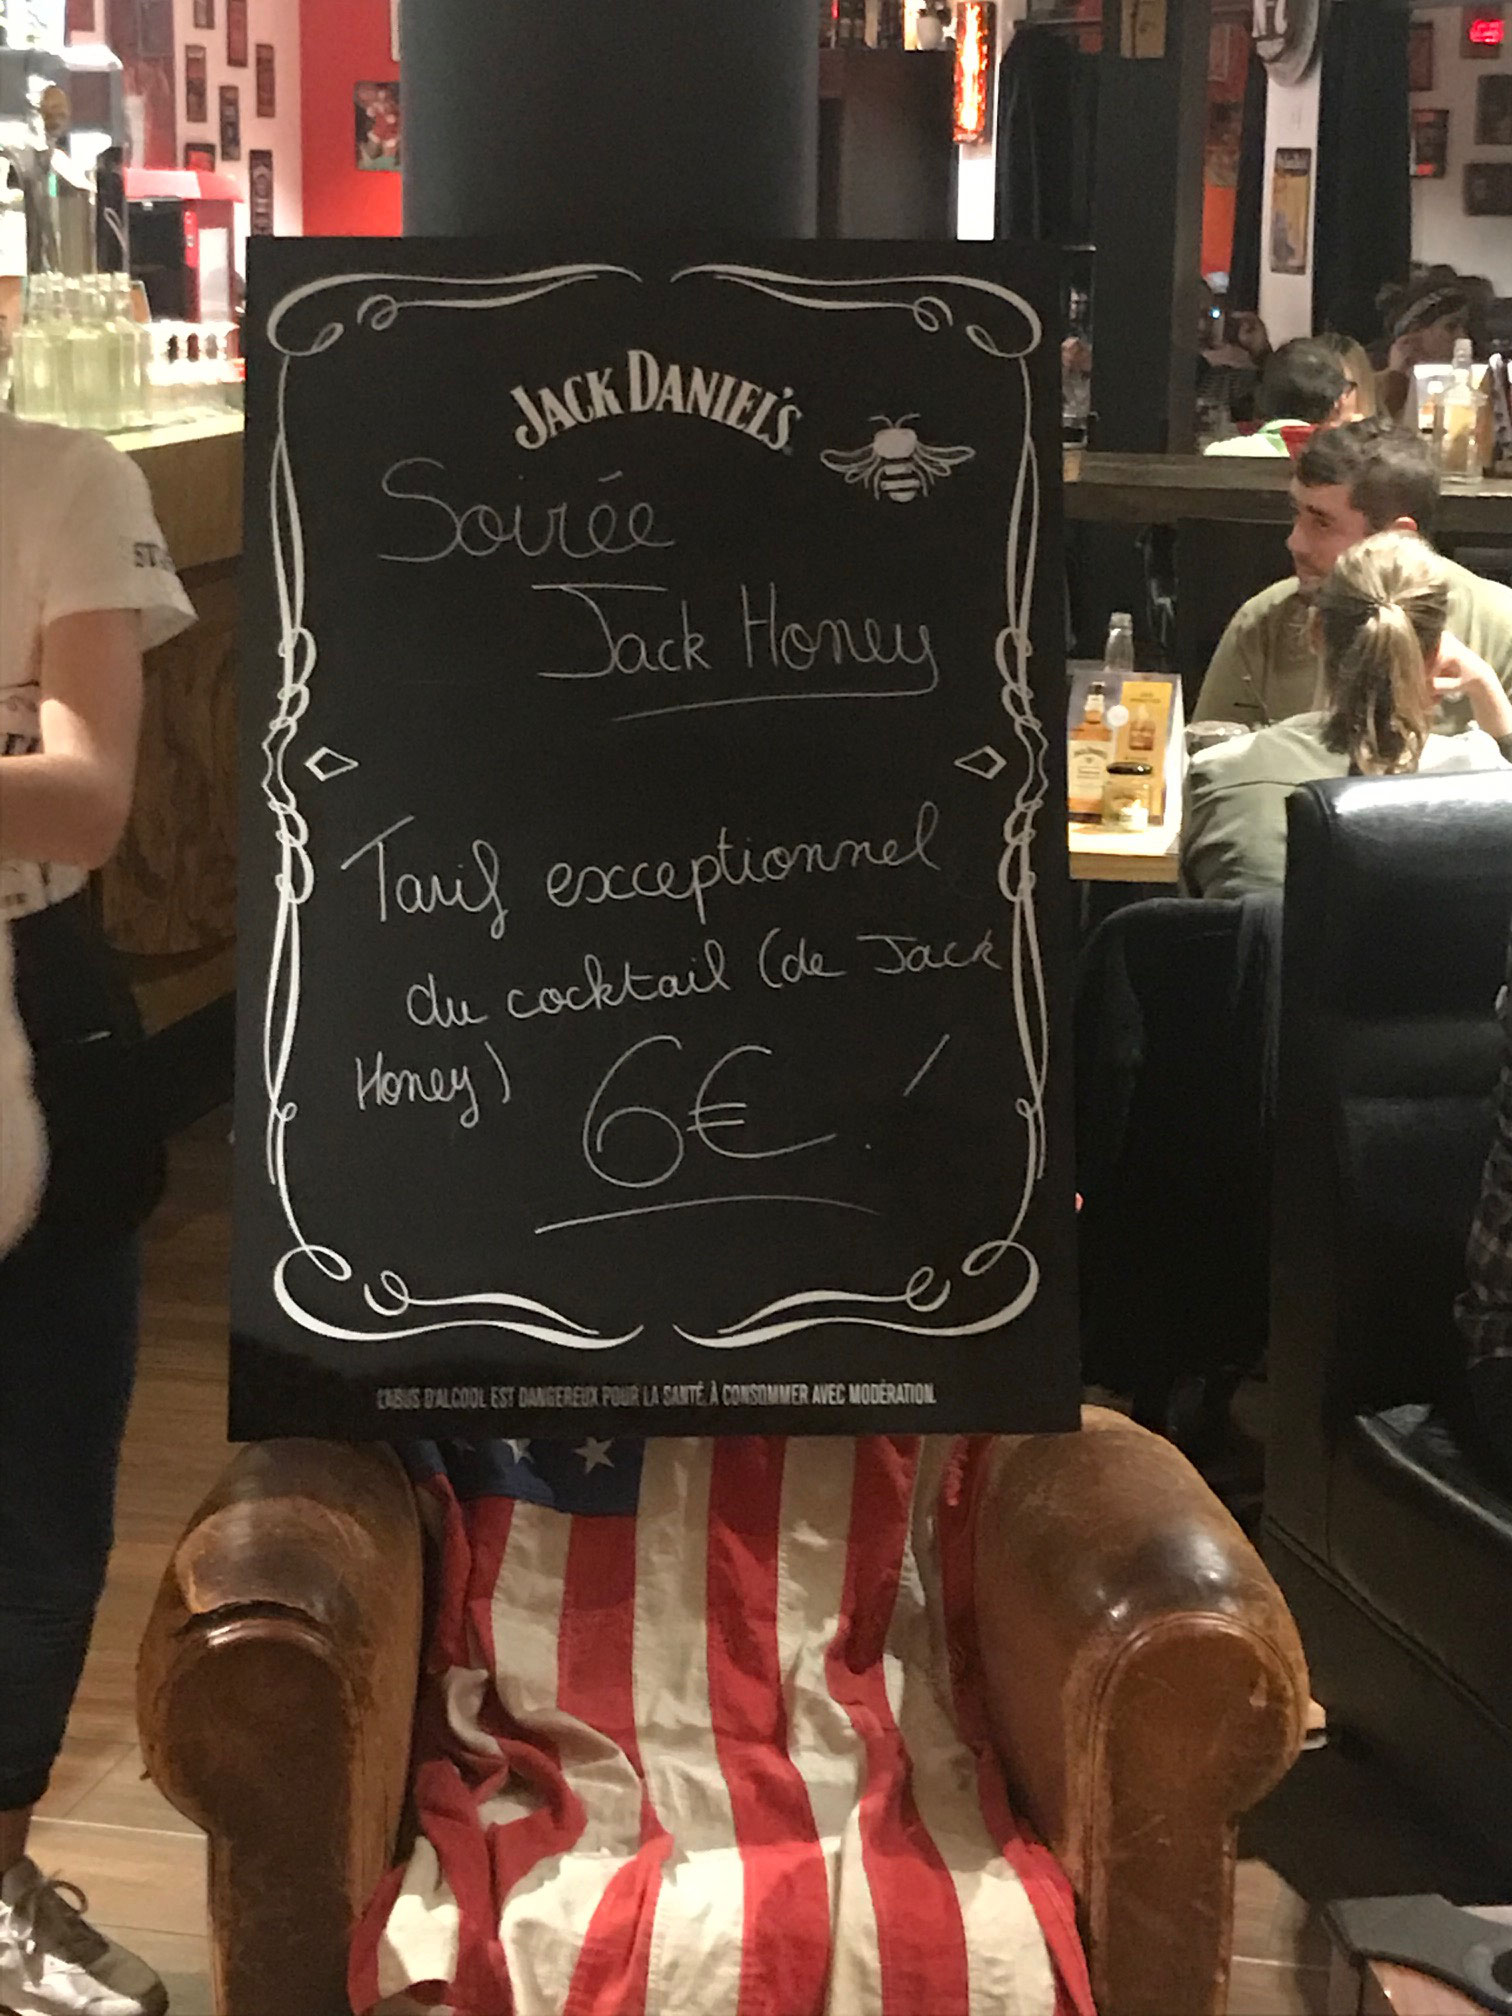 JACK DANIEL'S
Soirée
Jack Honey
Tarif exceptionnel
du cocktail (de Jack
Honey) 6€ !
L'ABUS D'ALCOOL EST DANGEREUX POUR LA SANTÉ, À CONSOMMER AVEC MODÉRATION.